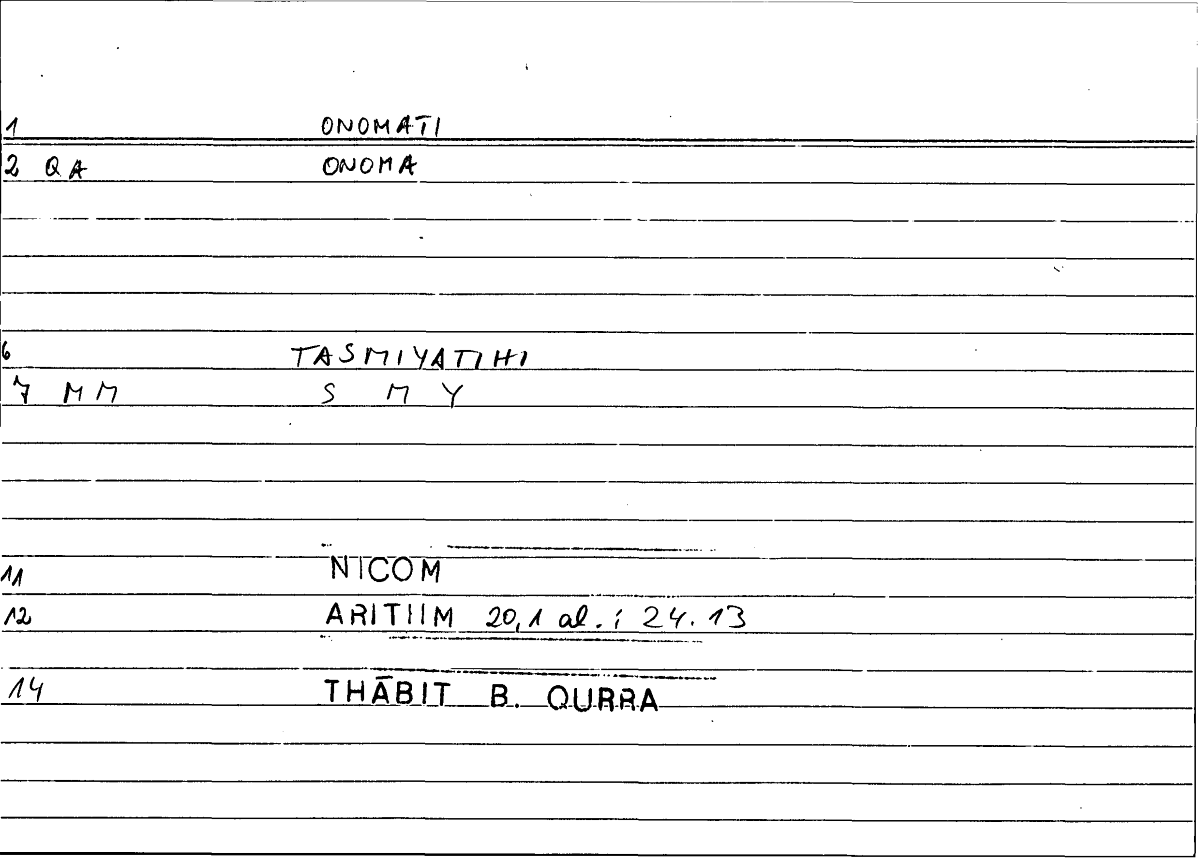 1 ONOMATI
2 QA ONOMA
6 TASMIYATIHI
7 MM S M Y
11 NICOM
12 ARITHM 20,1 al. ; 24.13
14 THĀBIT B. QURRA